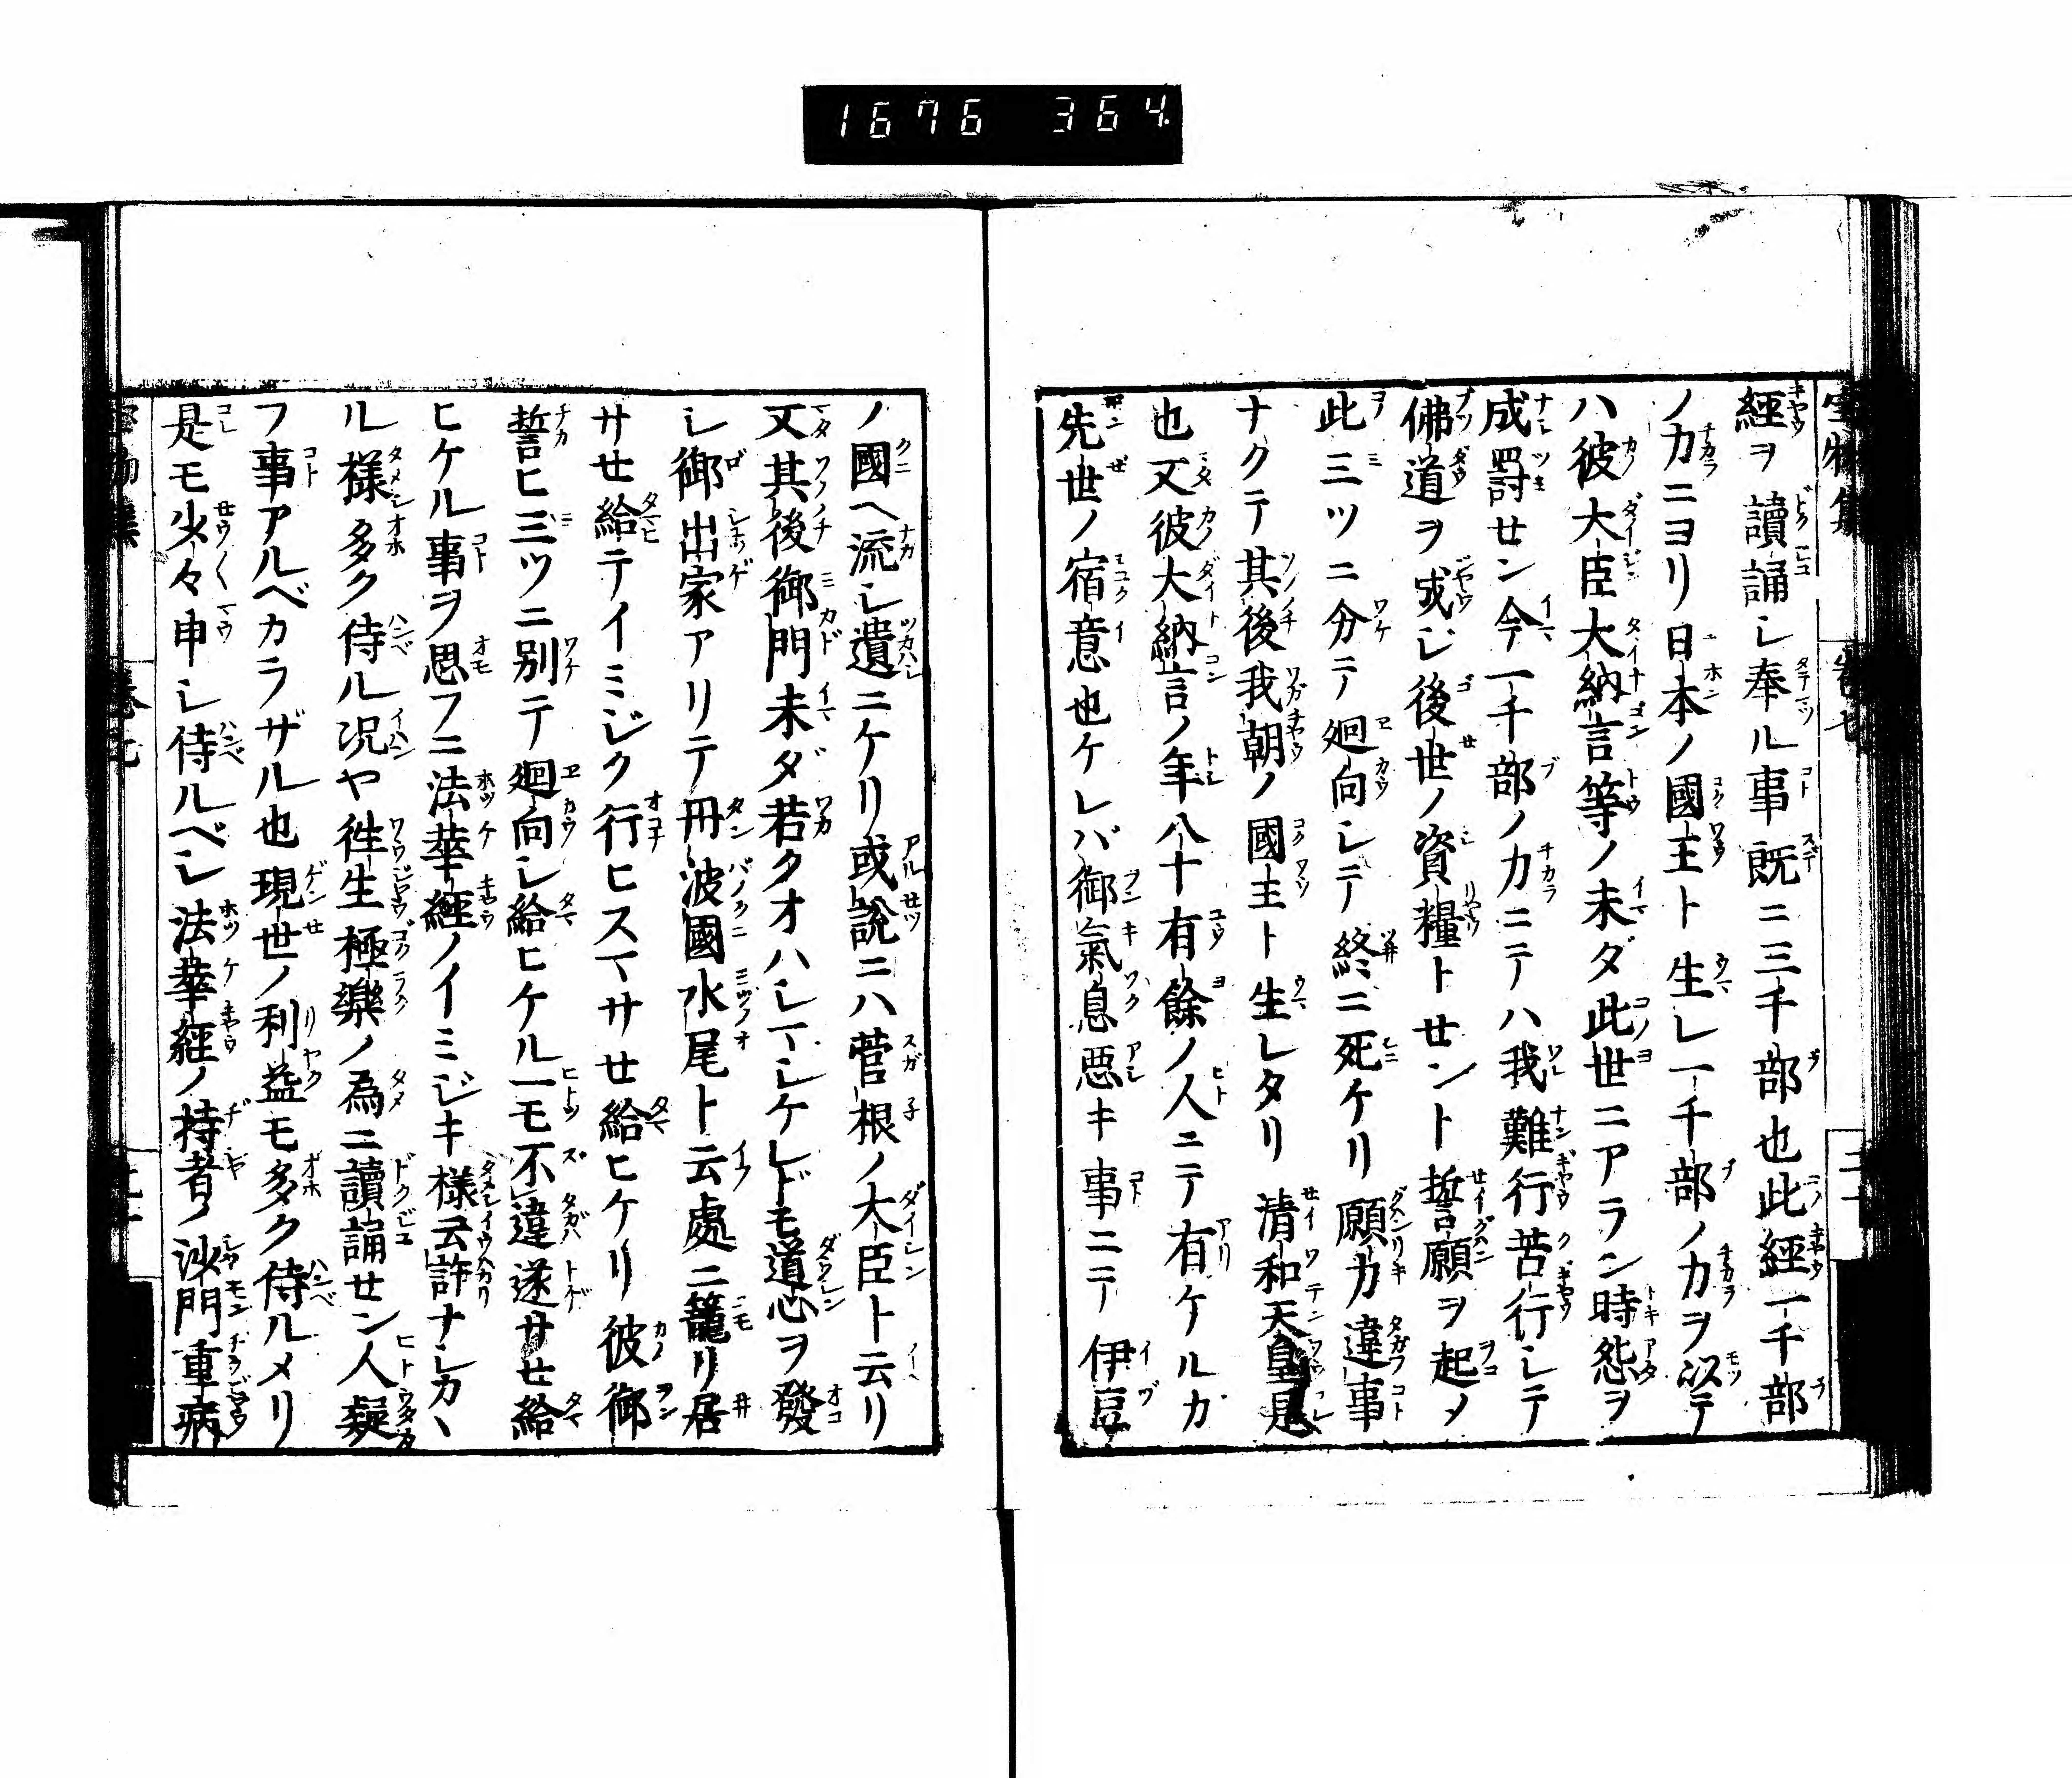 1676 364
經ヲ讀誦シ奉ル事既ニ三千部也此經一千部
ノ力ニヨリ日本ノ國主ト生レ一千部ノ力ヲ以テ
ハ彼大臣大納言等ノ未ダ此世ニアラン時怨ヲ
成罸セン今一千部ノ力ニテハ我難行苦行シテ
佛道ヲ成シ後世ノ資糧トセント誓願ヲ起メ
此三ツニ分テ廻向シテ終ニ死ケリ願力違事
ナクテ其後我朝ノ國主ト生レタリ清和天皇是
也又彼大納言ノ年八十有餘ノ人ニテ有ケルガ
先世ノ宿意也ケレバ御氣息惡キ事ニテ伊豆
ノ國ヘ流シ遣ニケリ或說ニハ菅根ノ大臣ト云リ
又其後御門未ダ若クオハシマシケレドモ道心ヲ發
シ御出家アリテ丹波國水尾ト云處ニ籠リ居
サセ給テイミジク行ヒスマサセ給ヒケリ彼御
誓ヒ三ツニ別テ廻向シ給ヒケル一モ不違遂サセ給
ヒケル事ヲ思フニ法華經ノイミジキ樣云許ナシカヽ
ル樣多ク侍ル况ヤ徃生極樂ノ為ニ讀誦セン人疑
フ事アルベカラザル也現世ノ利益モ多ク侍ルメリ
是モ少々申シ侍ルベシ法華經ノ持者ノ沙門重病